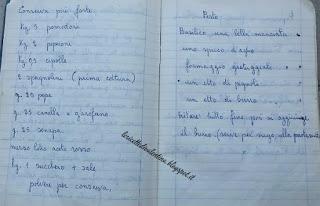 Conserva più forte.
Kg. 5 pomodori
Kg. 2 peperoni
Kg. 0,5 cipolle
2 spagnolini (prima cottura)
g. 20 pepe
g. 25 canella e garofano.
g. 25 senapa.
mezzo litro aceto rosso.
Kg. 1 zucchero + sale
polvere per conserva.
Pesto
Basilico una bella manciata
uno spicco d'aglio
formaggio grattuggiato
un etto di pignoli
un etto di burro
tritare tutto fine poi si aggiunge
il burro (serve per sugo alla pastasciutta
lericettedellanonna.blogspot.it